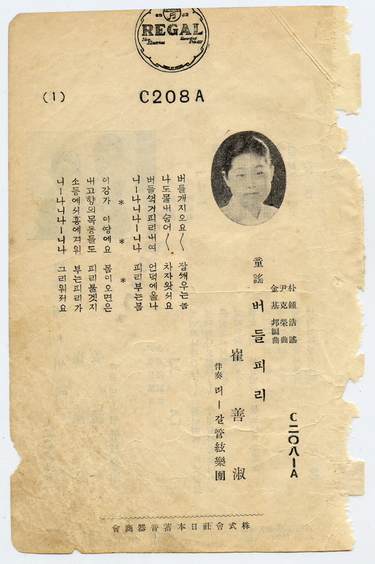 REGAL
(1)
C208A
朴鍾浩謠
尹克榮曲
金基邦編曲
C二〇八—A
童謠
버들피리
崔善淑
伴奏 리ー갈管絃樂團
버들개지오요〱 잠깨우는봄
나도몰내숨어〱 차자왓서요
버들꺽거피리내여 언덕에올나
니ー나니나ー니나 피리부는봄
* * *
이강가 이땅에요 봄이오면은
내고향의목동들도 피리불겟지
소등에서흥에겨워 부는피리가
니ー나니나ー니나 그리워저요
會商器音蓄本日社會式株